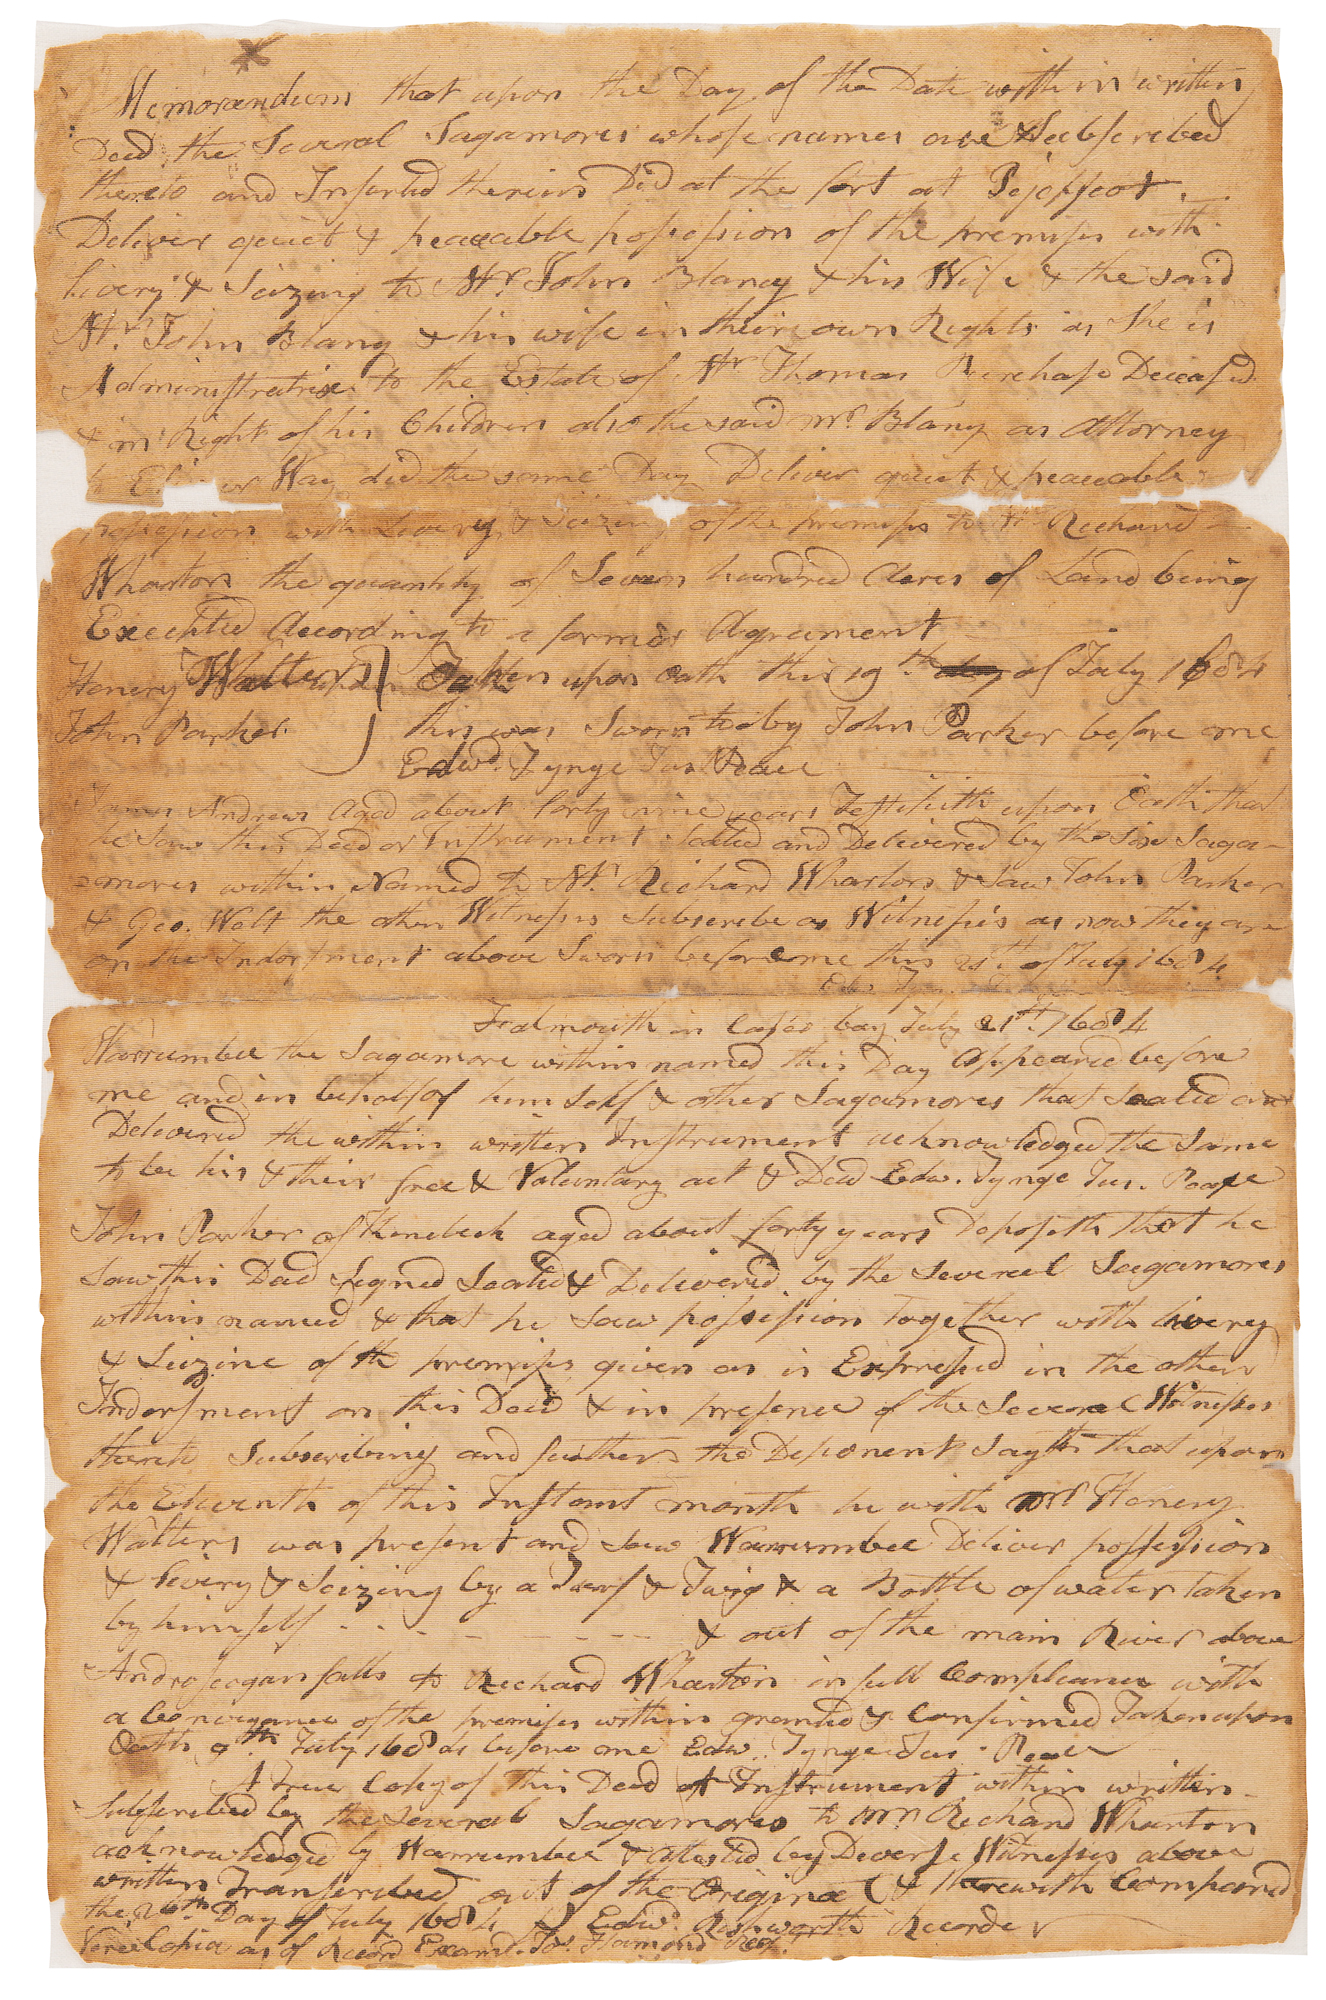 Memorandum that upon the Day of the Date within written
Deed, the Several Sagamores whose names are Subscribed
thereto and Inserted therein Did at the fort at Pejepscot
Deliver quiet & peaceable possession of the premises with
livery & Seizing to Mr. John Blany & his Wife & the said
Mr. John Blany & his wife in theire own Rights as She is
Administratrix to the Estate of Mr Thomas Purchase Deceased
& in Right of his Children also the said Mr. Blany as Attorney
Way did the same Day Deliver quiet & peaceable
possession with Livery & Seizing of the premises to Mr Richard
Wharton the quantity of Seven hundred Acres of Land being
Executed According to a former Agreement
Henery Walters } Taken upon Oath this 19th of July 1684
John Parker } this was Sworn to by John Parker before me
Edwd. Tynge Jus Peace
James Andrews Aged about forty nine years Testifieth upon Oath that
he Saw this Deed or Instrument Sealed and Delivered by the Six Saga-
mores within Named to Mr. Richard Wharton & Saw John Parker
& Geo. Walt the other Witnesses Subscribe as Witnesses as now they are
on the Indorsment above Sworn before me this 21th of July 1684
Edw Tyn
Falmouth in Casco bay July 21th. 1684
Warrumbee the Sagamore within named this Day Appeared before
me and in behalf of him Self & other Sagamores that Sealed and
Delivered the within written Instrument acknowledged the Same
to be his & their free & Voluntary act & Deed Edw. Tynge Jus. Peace
John Parker of Kenebeck aged about forty years Deposeth that he
Saw this Deed Segned Sealed & Delivered by the Several Sagamores
within named & that he Saw possession together with livery
& Seizine of the premises given as is Expressed in the other
Indorsment on this Deed & in presence of the Several Witnesses
thereto Subscribing and further the Deponent Sayth that upon
the Eleventh of this Instant month he with Mr. Henery
Walters was present and Saw Warrumbee Deliver possession
& livery & Seizing by a Turf & Twig & a Bottle of water taken
by himself - - - - - - - & out of the main River above
Androscogan falls to Richard Wharton in full Compleance with
a Conveyance of the premises within granted & Confirmed Taken upon
Oath July 1684 before me Edw. Tynge Jus. Peace
A True Copy of this Deed or Instrument within written
Subscribed by the Several Sagamores to Mr. Richard Wharton
acknowledged by Warrumbee & attested by Diverse Witnesses above
written Transcribed out of the Original & therewith Compared
the 26th Day of July 1684 Edwd. Rishworth Recorder
Vera Copia as of Record Examd. Jos. Hamond Regr.